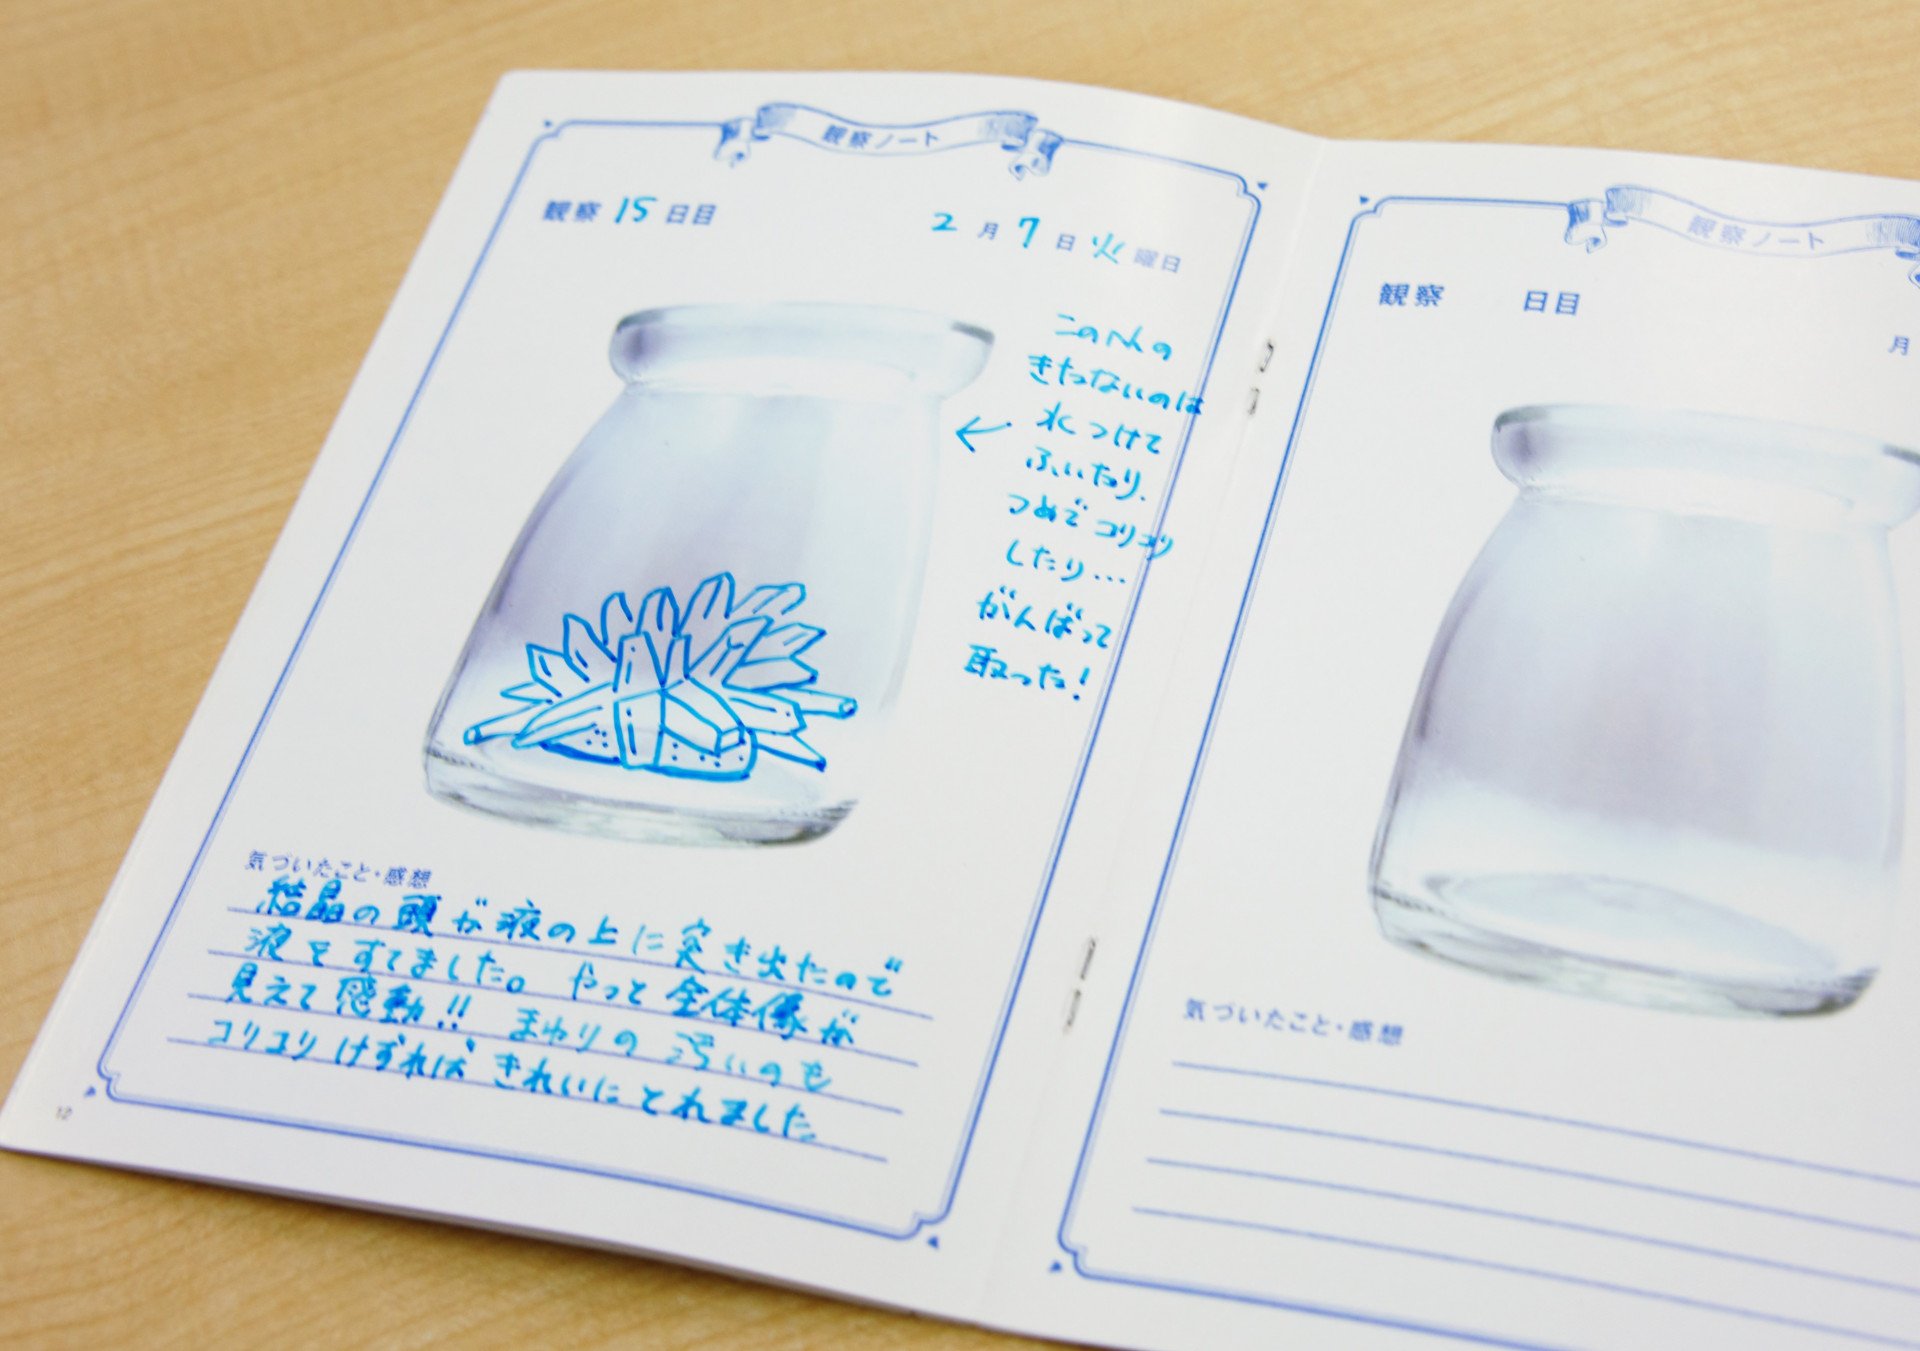 観察ノート
観察 15 日目
2 月 7 日 火 曜日
このへんの
きたないのは
水つけて
ふいたり、
つめでコリコリ
したり…
がんばって
取った!
気づいたこと・感想
結晶の頭が液の上に突き出たので
液をすてました。やっと全体像が
見えて感動!! まわりの汚いのも
コリコリけずればきれいにとれました
12
観察ノート
観察 日目
月
気づいたこと・感想